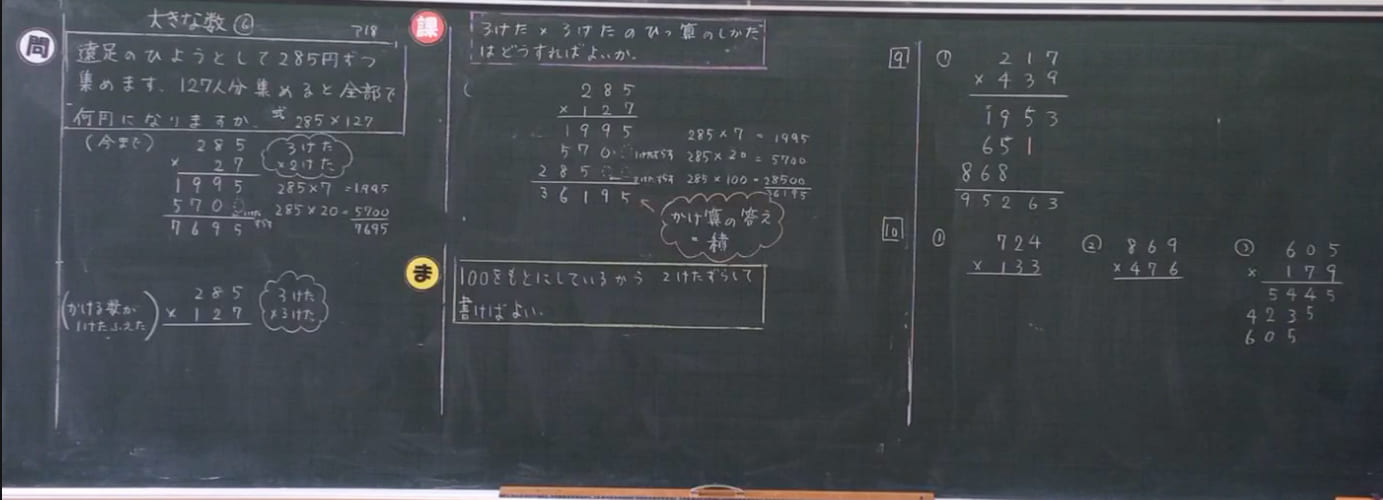 大きな数⑥ P18
問
遠足のひようとして285円ずつ
集めます。127人分集めると全部で
何円になりますか。 式 285×127
(今まで)
285
×27
1995
570
7695
3けた
×2けた
285×7=1995
285×20=5700
7695
(かける数が
1けたふえた)
285
×127
3けた
×3けた
課
3けた×3けたのひっ算のしかた
はどうすればよいか。
285
×127
1995
570 1けたずらす
285 2けたずらす
36195
285×7=1995
285×20=5700
285×100=28500
36195
かけ算の答え
=積
ま
100をもとにしているから 2けたずらして
書けばよい。
9 ①
217
×439
1953
651
868
95263
10 ①
724
×133
②
869
×476
③
605
×179
5445
4235
605